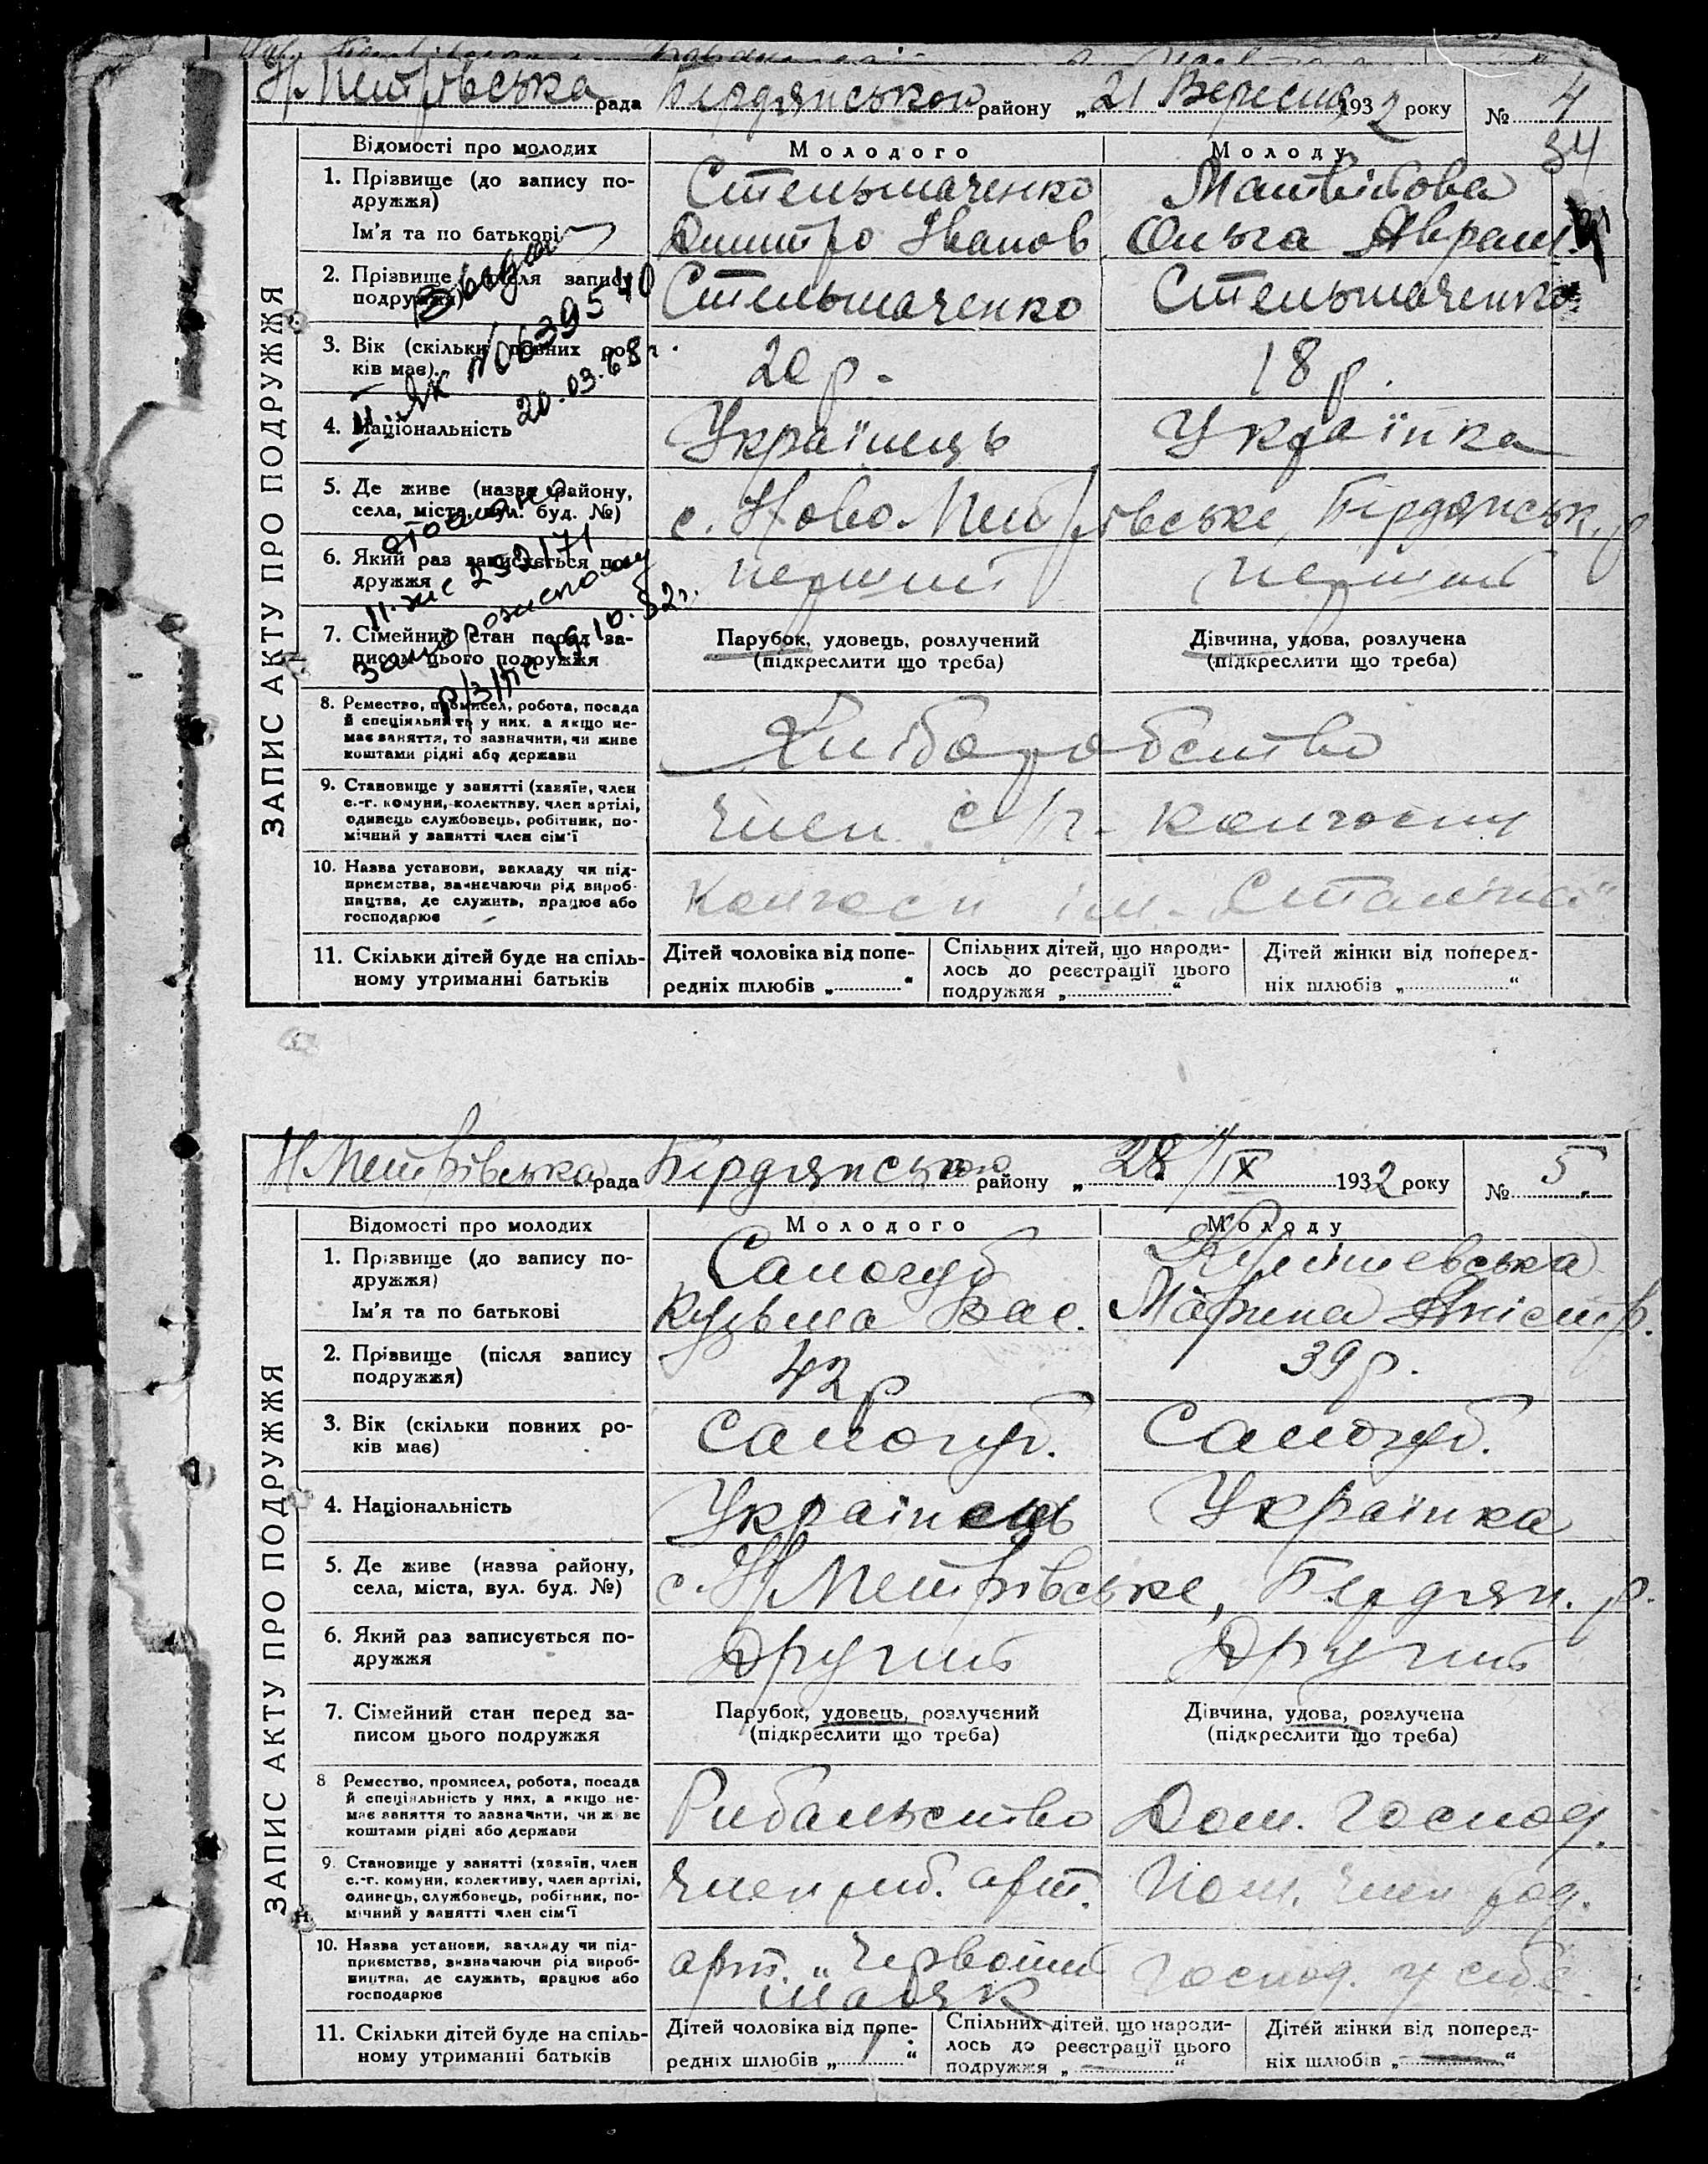 Н Петрівська рада Бірдянського району „21 Вересня 1932 року № 4
34
Відомості про молодих Молодого Молоду
1. Прізвище (до запису по-
дружжя) Стельмаченко
Ім'я та по батькові Дмитро Іванов. Ольга Аврам.
2. Прізвище (після запису
подружжя) Стельмаченко Стельмаченко
3. Вік (скільки повних ро-
ків має) 20 р. 18 р.
4. Національність Українець Українка
5. Де живе (назва району,
села, міста, вул. буд. №) с. Ново-Петрівське, Бірдянськ. р
6. Який раз записується по-
дружжя перший перший
7. Сімейний стан перед за-
писом цього подружжя
Парубок, удовець, розлучений
(підкреслити що треба)
Дівчина, удова, розлучена
(підкреслити що треба)
8. Ремество, промисел, робота, посада
й спеціяльність у них, а якщо не-
має заняття, то зазначити, чи живе
коштами рідні або держави
Хліборобство
9. Становище у занятті (хазяїн, член
с.-г. комуни, колективу, член артілі,
одинець службовець, робітник, по-
мічний у занятті член сім'ї
Член с/г. колгоспу
10. Назва установи, закладу чи під-
приємства, зазначаючи рід вироб-
ництва, де служить, працює або
господарює
Колгосп ім. Сталіна"
11. Скільки дітей буде на спіль-
ному утриманні батьків
Дітей чоловіка від попе-
редніх шлюбів „ “
Спільних дітей, що народи-
лось до реєстрації цього
подружжя „ “
Дітей жінки від поперед-
ніх шлюбів „ “
ЗАПИС АКТУ ПРО ПОДРУЖЖЯ
20.03.68 г.
19.10.82 г.
Н Петрівська рада Бірдянського району „28 / IX 1932 року № 5.
Відомості про молодих Молодого Молоду
1. Прізвище (до запису по-
дружжя) Самогуб
Ім'я та по батькові Кузьма Вас. Марина
2. Прізвище (після запису
подружжя) 42 р 39 р.
3. Вік (скільки повних ро-
ків має) Самогуб. Самогуб.
4. Національність Українець Українка
5. Де живе (назва району,
села, міста, вул. буд. №) с. Н Петрівське, Бердян. р.
6. Який раз записується по-
дружжя Другий Другий
7. Сімейний стан перед за-
писом цього подружжя
Парубок, удовець, розлучений
(підкреслити що треба)
Дівчина, удова, розлучена
(підкреслити що треба)
8 Ремество, промисел, робота, посада
й спеціяльність у них, а якщо не-
має заняття то зазначити, чи живе
коштами рідні або держави
Рибальство Дом. господ.
9. Становище у занятті (хазяїн, член
с.-г. комуни, колективу, член артілі,
одинець, службовець, робітник, по-
мічний у занятті член сім'ї
Член риб. арт. Пом. член род.
10. Назва установи, закладу чи під-
приємства, визначаючи рід вироб-
ництва, де служить, працює або
господарює
арт. „Червоний
маяк Господ. у себе.
11. Скільки дітей буде на спіль-
ному утриманні батьків
Дітей чоловіка від попе-
редніх шлюбів „ 1 “
Спільних дітей, що народи-
лось до реєстрації цього
подружжя „ — “
Дітей жінки від поперед-
ніх шлюбів „ — “
ЗАПИС АКТУ ПРО ПОДРУЖЖЯ